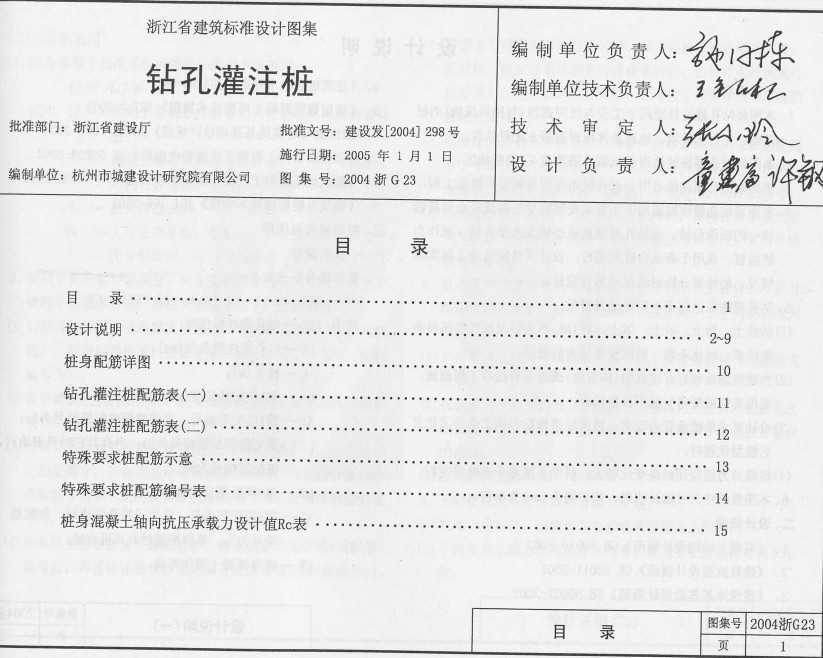 浙江省建筑标准设计图集
钻孔灌注桩
批准部门：浙江省建设厅
批准文号：建设发[2004] 298号
施行日期：2005 年 1 月 1 日
编制单位：杭州市城建设计研究院有限公司
图 集 号：2004 浙 G 23
编 制 单 位 负 责 人：
编制单位技术负责人：
技 术 审 定 人：
设 计 负 责 人：
目 录
目 录 1
设计说明 2~9
桩身配筋详图 10
钻孔灌注桩配筋表(一) 11
钻孔灌注桩配筋表(二) 12
特殊要求桩配筋示意 13
特殊要求桩配筋编号表 14
桩身混凝土轴向抗压承载力设计值Rc表 15
目 录
图集号 2004浙G23
页 1